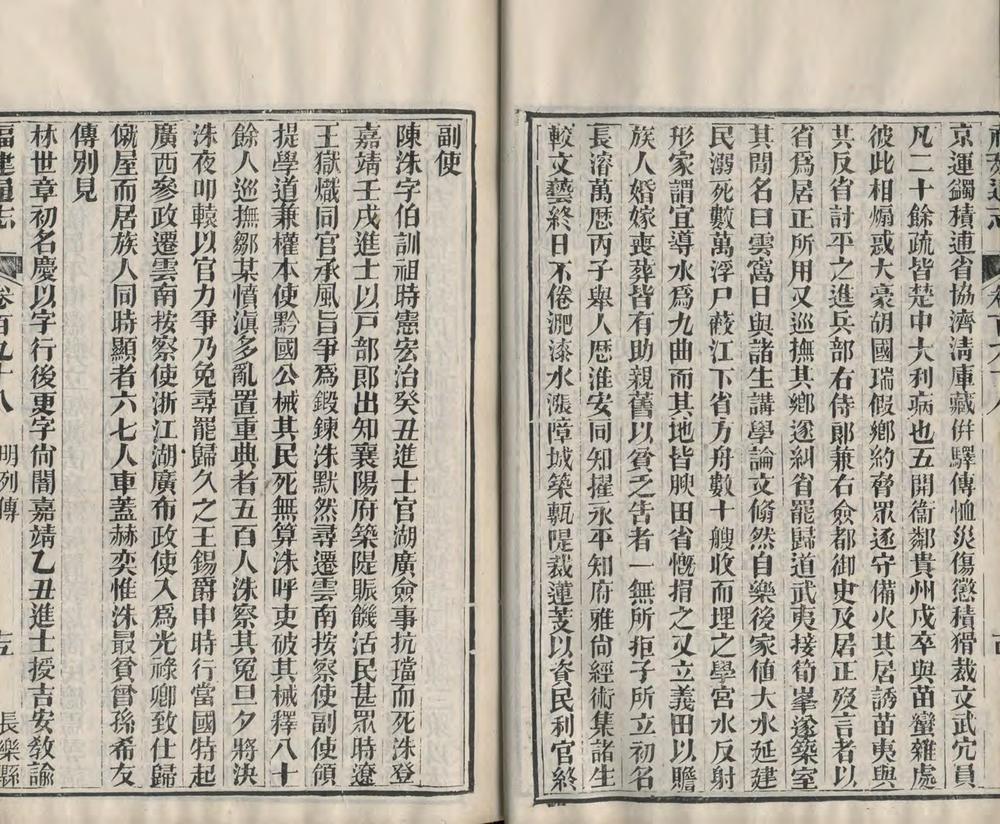 京運蠲積逋省協濟清庫藏併驛傳恤災傷懲積猾裁文武冗員
凡二十餘疏皆楚中大利病也五開衞鄰貴州戍卒與苗蠻雜處
彼此相煽惑大豪胡國瑞假鄉約脅眾逐守備火其居誘苗夷與
共反省計平之進兵部右侍郎兼右僉都御史及居正歿言者以
省爲居正所用又巡撫其鄉遂糾省罷歸道武夷接筍峯遂築室
其間名曰雲窩日與諸生講學論文翛然自樂後家値大水延建
民溺死數萬浮尸蔽江下省方舟數十艘收而埋之學宮水反射
形家謂宜導水爲九曲而其地皆腴田省慨捐之又立義田以贍
族人婚嫁喪葬皆有助親舊以貧乏吿者一無所拒子所立初名
長濬萬厯丙子舉人厯淮安同知擢永平知府雅尙經術集諸生
較文藝終日不倦淝漆水漲障城築甎隄栽蓮芰以資民利官終
副使
陳洙字伯訓祖時憲宏治癸丑進士官湖廣僉事抗璫而死洙登
嘉靖壬戌進士以戸部郎出知襄陽府築隄賑饑活民甚眾時遼
王獄熾同官承風旨爭爲鍛鍊洙默然尋遷雲南按察使副使領
提學道兼權本使黔國公械其民死無算洙呼吏破其械釋八十
餘人巡撫鄒某憤滇多亂置重典者五百人洙察其冤旦夕將決
洙夜叩轅以官力爭乃免尋罷歸久之王錫爵申時行當國特起
廣西參政遷雲南按察使浙江湖廣布政使入爲光祿卿致仕歸
僦屋而居族人同時顯者六七人車蓋赫奕惟洙最貧曾孫希友
傳別見
林世章初名慶以字行後更字尙闇嘉靖乙丑進士授吉安敎諭
福建通志
卷百九十八
明列傳
長樂縣